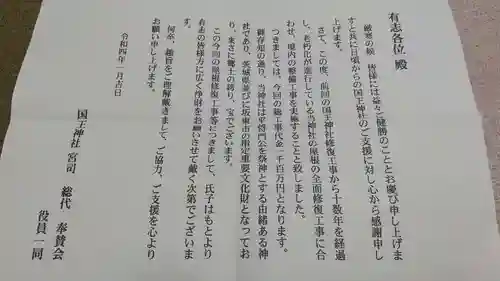 有志各位 殿
厳寒の候 皆様には益々ご健勝のこととお慶び申し上げま
すと共に日頃からの国王神社のご支援に対し心から感謝申し
上げます。
さて、この度、前回の国王神社修復工事から十数年を経過
し、老朽化が進行している当神社の屋根の全面修復工事に合
わせ、境内の整備工事を実施することと致しました。
つきましては、今回の総工事代金一千百万円となります。
御存知の通り、当神社は平将門公を祭神とする由緒ある神
社であり、茨城県並びに坂東市の指定重要文化財となってお
り、まさに郷土の誇り、宝でございます。
この今回の屋根修復工事等につきまして、氏子はもとより
有志の皆様方に広く浄財をお願いさせて戴く次第でございま
す。
何卒、趣旨をご理解戴きまして、ご協力、ご支援を心より
お願い申し上げます。
令和四年一月吉日
国王神社 宮司 総代 奉賛会
役員一同